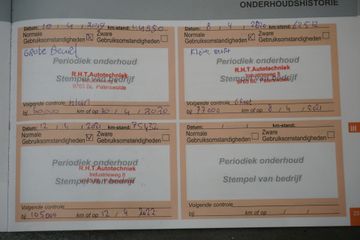 ONDERHOUDSHISTORIE
Datum: 10 4 km-stand: 44950
Normale Zware
Gebruiksomstandigheden Gebruiksomstandigheden
Grote Beurt
Periodiek onderhoud
R.H.T. Autotechniek
Stempel van bedrijf
Volgende controle
bij km of op 4 2020
Datum: 8 4 2020 km-stand:
Normale Zware
Gebruiksomstandigheden Gebruiksomstandigheden
Periodiek onderhoud
R.H.T. Autotechniek
Industrieweg 8
Stempel van bedrijf
Volgende controle: Groot
bij 77000 km of op 8 4
Datum: 12 4 km-stand: 75432
Normale Zware
Gebruiksomstandigheden Gebruiksomstandigheden
Periodiek onderhoud
R.H.T. Autotechniek
Industrieweg 8
Stempel van bedrijf
Volgende controle:
bij 105000 km of op 12 4 2022
Datum: km-stand:
Normale Zware
Gebruiksomstandigheden Gebruiksomstandigheden
Periodiek onderhoud
Stempel van bedrijf
Volgende controle:
bij km of op